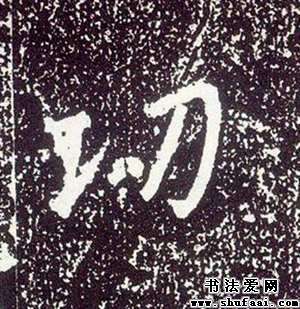 切
书法爱网
www.shufaai.com